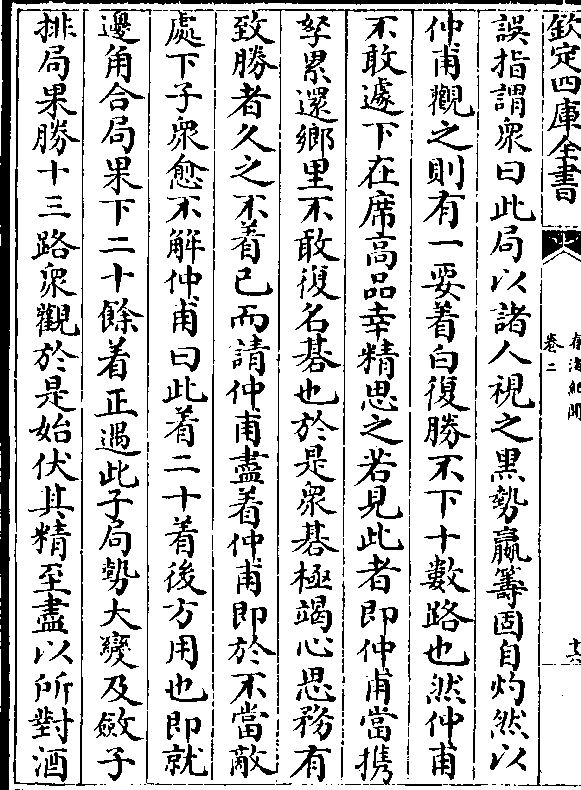 欽定四庫全書
春渚紀聞
卷二
誤指謂衆曰此局以諸人視之黒勢贏籌固自灼然以
仲甫觀之則有一要着白復勝不下十數路也然仲甫
不敢遽下在席高品幸精思之若見此者即仲甫當携
孥累還鄉里不敢復名棊也於是衆棊極竭心思務有
致勝者久之不着已而請仲甫盡着仲甫即於不當敵
處下子衆愈不解仲甫曰此着二十着後方用也即就
邊角合局果下二十餘着正遇此子局勢大變及斂子
排局果勝十三路衆觀於是始伏其精至盡以所對酒